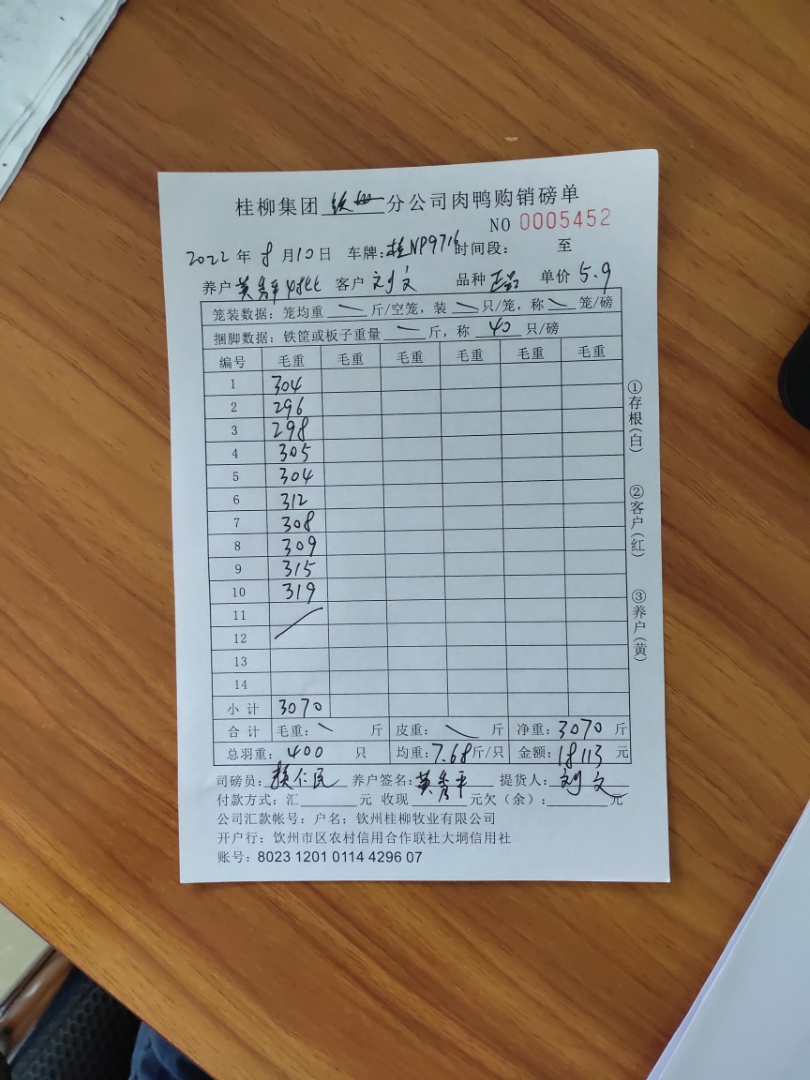 桂柳集团 钦州 分公司肉鸭购销磅单
NO 0005452
2022 年 8 月 10 日 车牌: 桂NP9716 时间段: 至
养户 黄秀平 客户 刘文 品种 正品 单价 5.9
笼装数据: 笼均重 斤/空笼, 装 只/笼, 称 笼/磅
捆脚数据: 铁筐或板子重量 斤, 称 40 只/磅
编号 毛重 毛重 毛重 毛重 毛重 毛重
1 304
2 296
3 298
4 305
5 304
6 312
7 308
8 309
9 315
10 319
11
12
13
14
小计 3070
合计 毛重: 斤 皮重: 斤 净重: 3070 斤
总羽重: 400 只 均重: 7.68 斤/只 金额: 18113 元
司磅员: 仁民 养户签名: 黄秀平 提货人: 刘文
付款方式: 汇 元 收现 元欠(余): 元
公司汇款帐号: 户名: 钦州桂柳牧业有限公司
开户行: 钦州市区农村信用合作联社大垌信用社
账号: 8023 1201 0114 4296 07
①存根(白)
②客户(红)
③养户(黄)